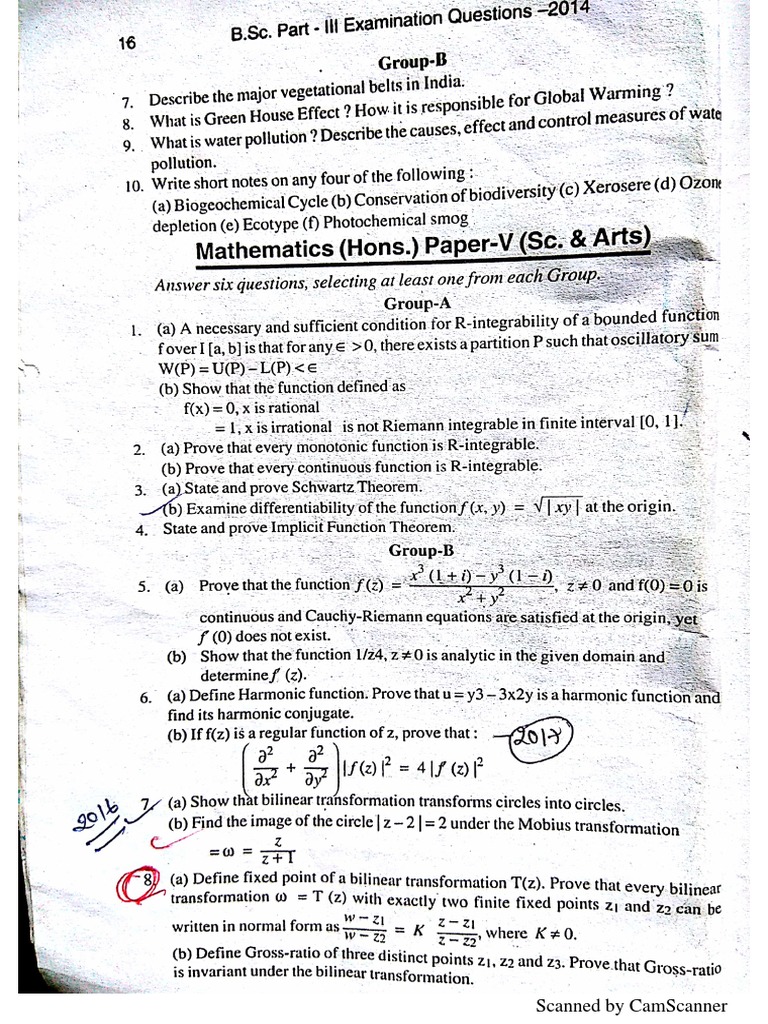 16
B.Sc. Part - III Examination Questions –2014
Group-B
7. Describe the major vegetational belts in India.
8. What is Green House Effect ? How it is responsible for Global Warming ?
9. What is water pollution ? Describe the causes, effect and control measures of wate
pollution.
10. Write short notes on any four of the following :
(a) Biogeochemical Cycle (b) Conservation of biodiversity (c) Xerosere (d) Ozone
depletion (e) Ecotype (f) Photochemical smog
Mathematics (Hons.) Paper-V (Sc. & Arts)
Answer six questions, selecting at least one from each Group.
Group-A
1. (a) A necessary and sufficient condition for R-integrability of a bounded function
f over I [a, b] is that for any ∈ >0, there exists a partition P such that oscillatory sum
W(P) = U(P) – L(P) < ∈
(b) Show that the function defined as
f(x) = 0, x is rational
= 1, x is irrational is not Riemann integrable in finite interval [0, 1].
2. (a) Prove that every monotonic function is R-integrable.
(b) Prove that every continuous function is R-integrable.
3. (a) State and prove Schwartz Theorem.
(b) Examine differentiability of the function f (x, y) = √| xy | at the origin.
4. State and prove Implicit Function Theorem.
Group-B
5. (a) Prove that the function f (z) = x³ (1 + i) – y³ (1 – i) / x² + y², z ≠ 0 and f(0) = 0 is
continuous and Cauchy-Riemann equations are satisfied at the origin, yet
f' (0) does not exist.
(b) Show that the function 1/z4, z ≠ 0 is analytic in the given domain and
determine f' (z).
6. (a) Define Harmonic function. Prove that u = y3 – 3x2y is a harmonic function and
find its harmonic conjugate.
(b) If f(z) is a regular function of z, prove that : 2017
(∂²/∂x² + ∂²/∂y²) | f (z) |² = 4 | f' (z) |²
2016 7. (a) Show that bilinear transformation transforms circles into circles.
(b) Find the image of the circle | z – 2 | = 2 under the Mobius transformation
= ω = z / z + 1
8. (a) Define fixed point of a bilinear transformation T(z). Prove that every bilinear
transformation ω = T (z) with exactly two finite fixed points z1 and z2 can be
written in normal form as w – z1 / w – z2 = K z – z1 / z – z2, where K ≠ 0.
(b) Define Gross-ratio of three distinct points z1, z2 and z3. Prove that Gross-ratio
is invariant under the bilinear transformation.
Scanned by CamScanner